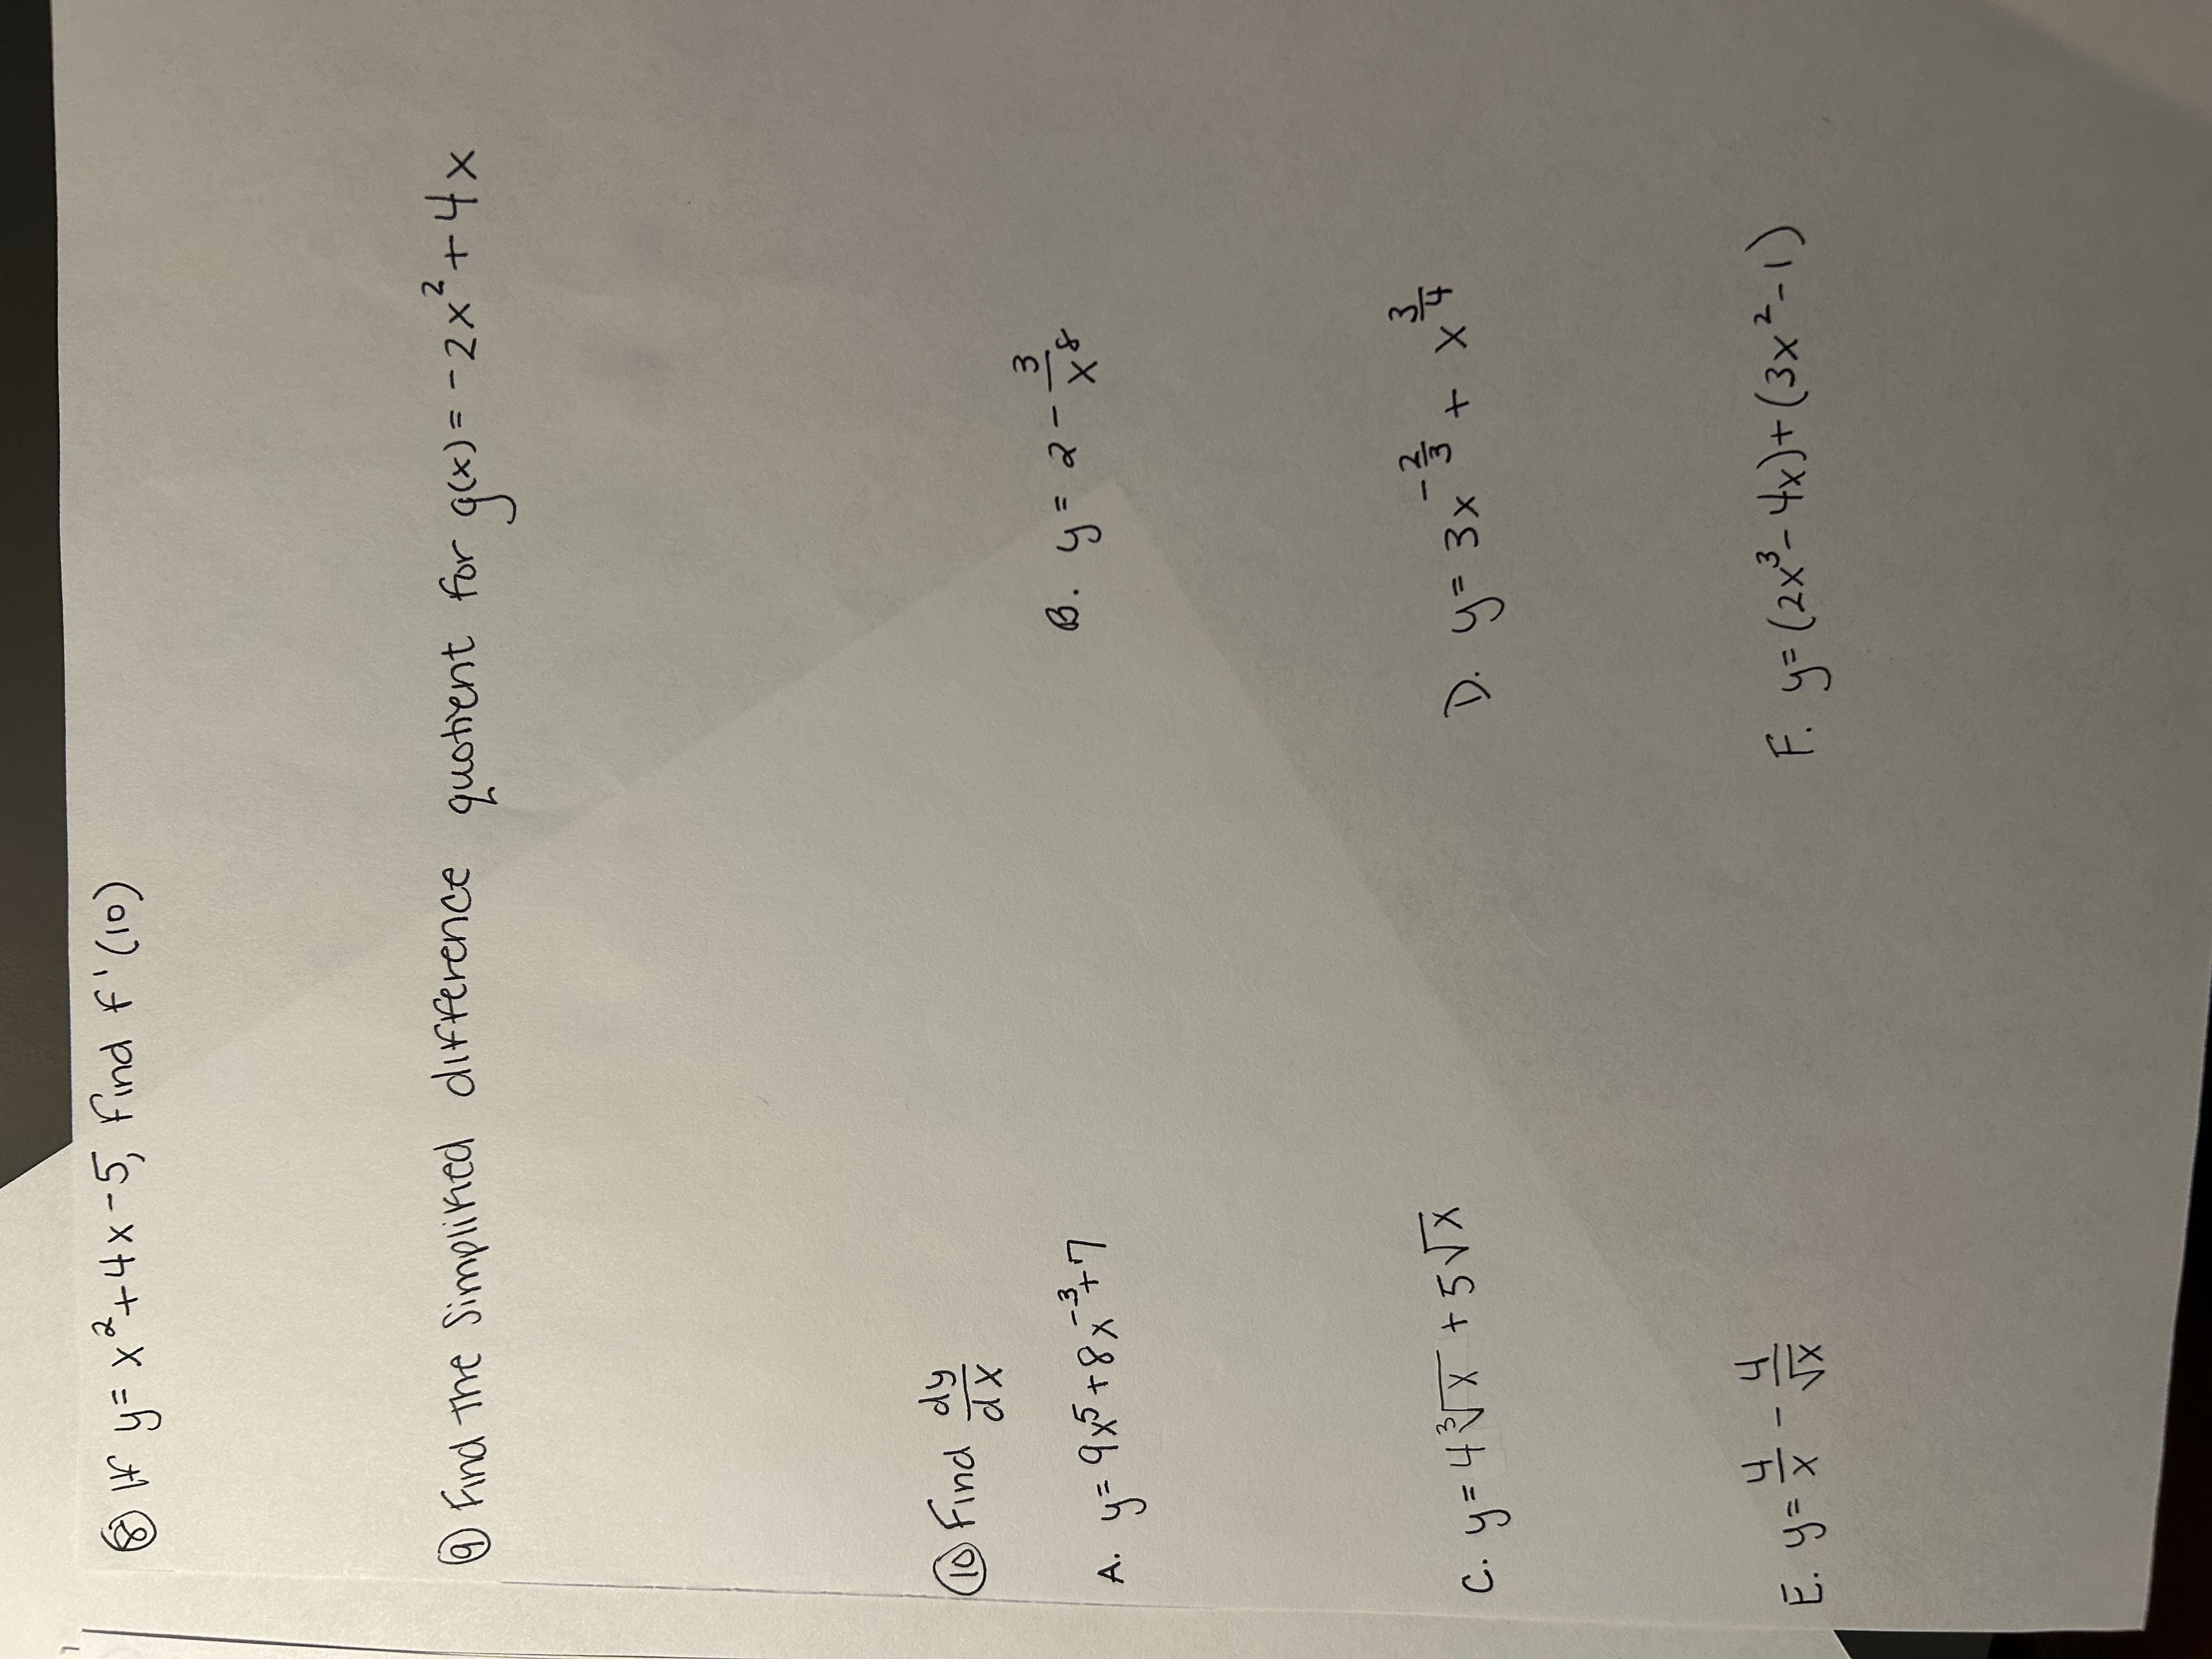 ⑧ If y = x² + 4x - 5, find f'(10)
⑨ Find the simplified difference quotient for g(x) = -2x² + 4x
⑩ Find dy/dx
A. y = 9x⁵ + 8x⁻³ + 7
B. y = 2 - 3/x⁸
C. y = 4∛x + 5√x
D. y = 3x^(-2/3) + x^(3/4)
E. y = 4/x - 4/√x
F. y = (2x³ - 4x) + (3x² - 1)